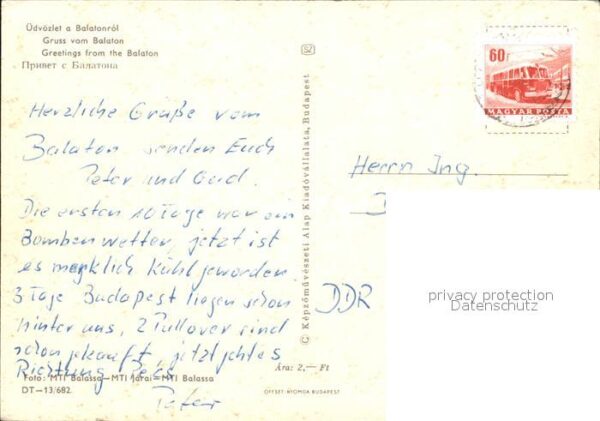 Üdvözlet a Balatonról
Gruss vom Balaton
Greetings from the Balaton
Привет с Балатона
Herzliche Grüße vom
Balaton senden Euch
Peter und
Die ersten 10 Tage war ein
Bombenwetter, jetzt ist
es merklich kühl geworden.
3 Tage Budapest liegen schon
hinter uns, 2 Pullover sind
schon gekauft, jetzt geht es
Richtung Pécs
Peter
Foto: MTI Balassa—MTI Járai—MTI Balassa
DT—13/682
© Képzőművészeti Alap Kiadóvállalata, Budapest
Ára: 2,— Ft
OFFSET-NYOMDA BUDAPEST
60f
MAGYAR POSTA
Herrn Ing.
DDR
privacy protection
Datenschutz